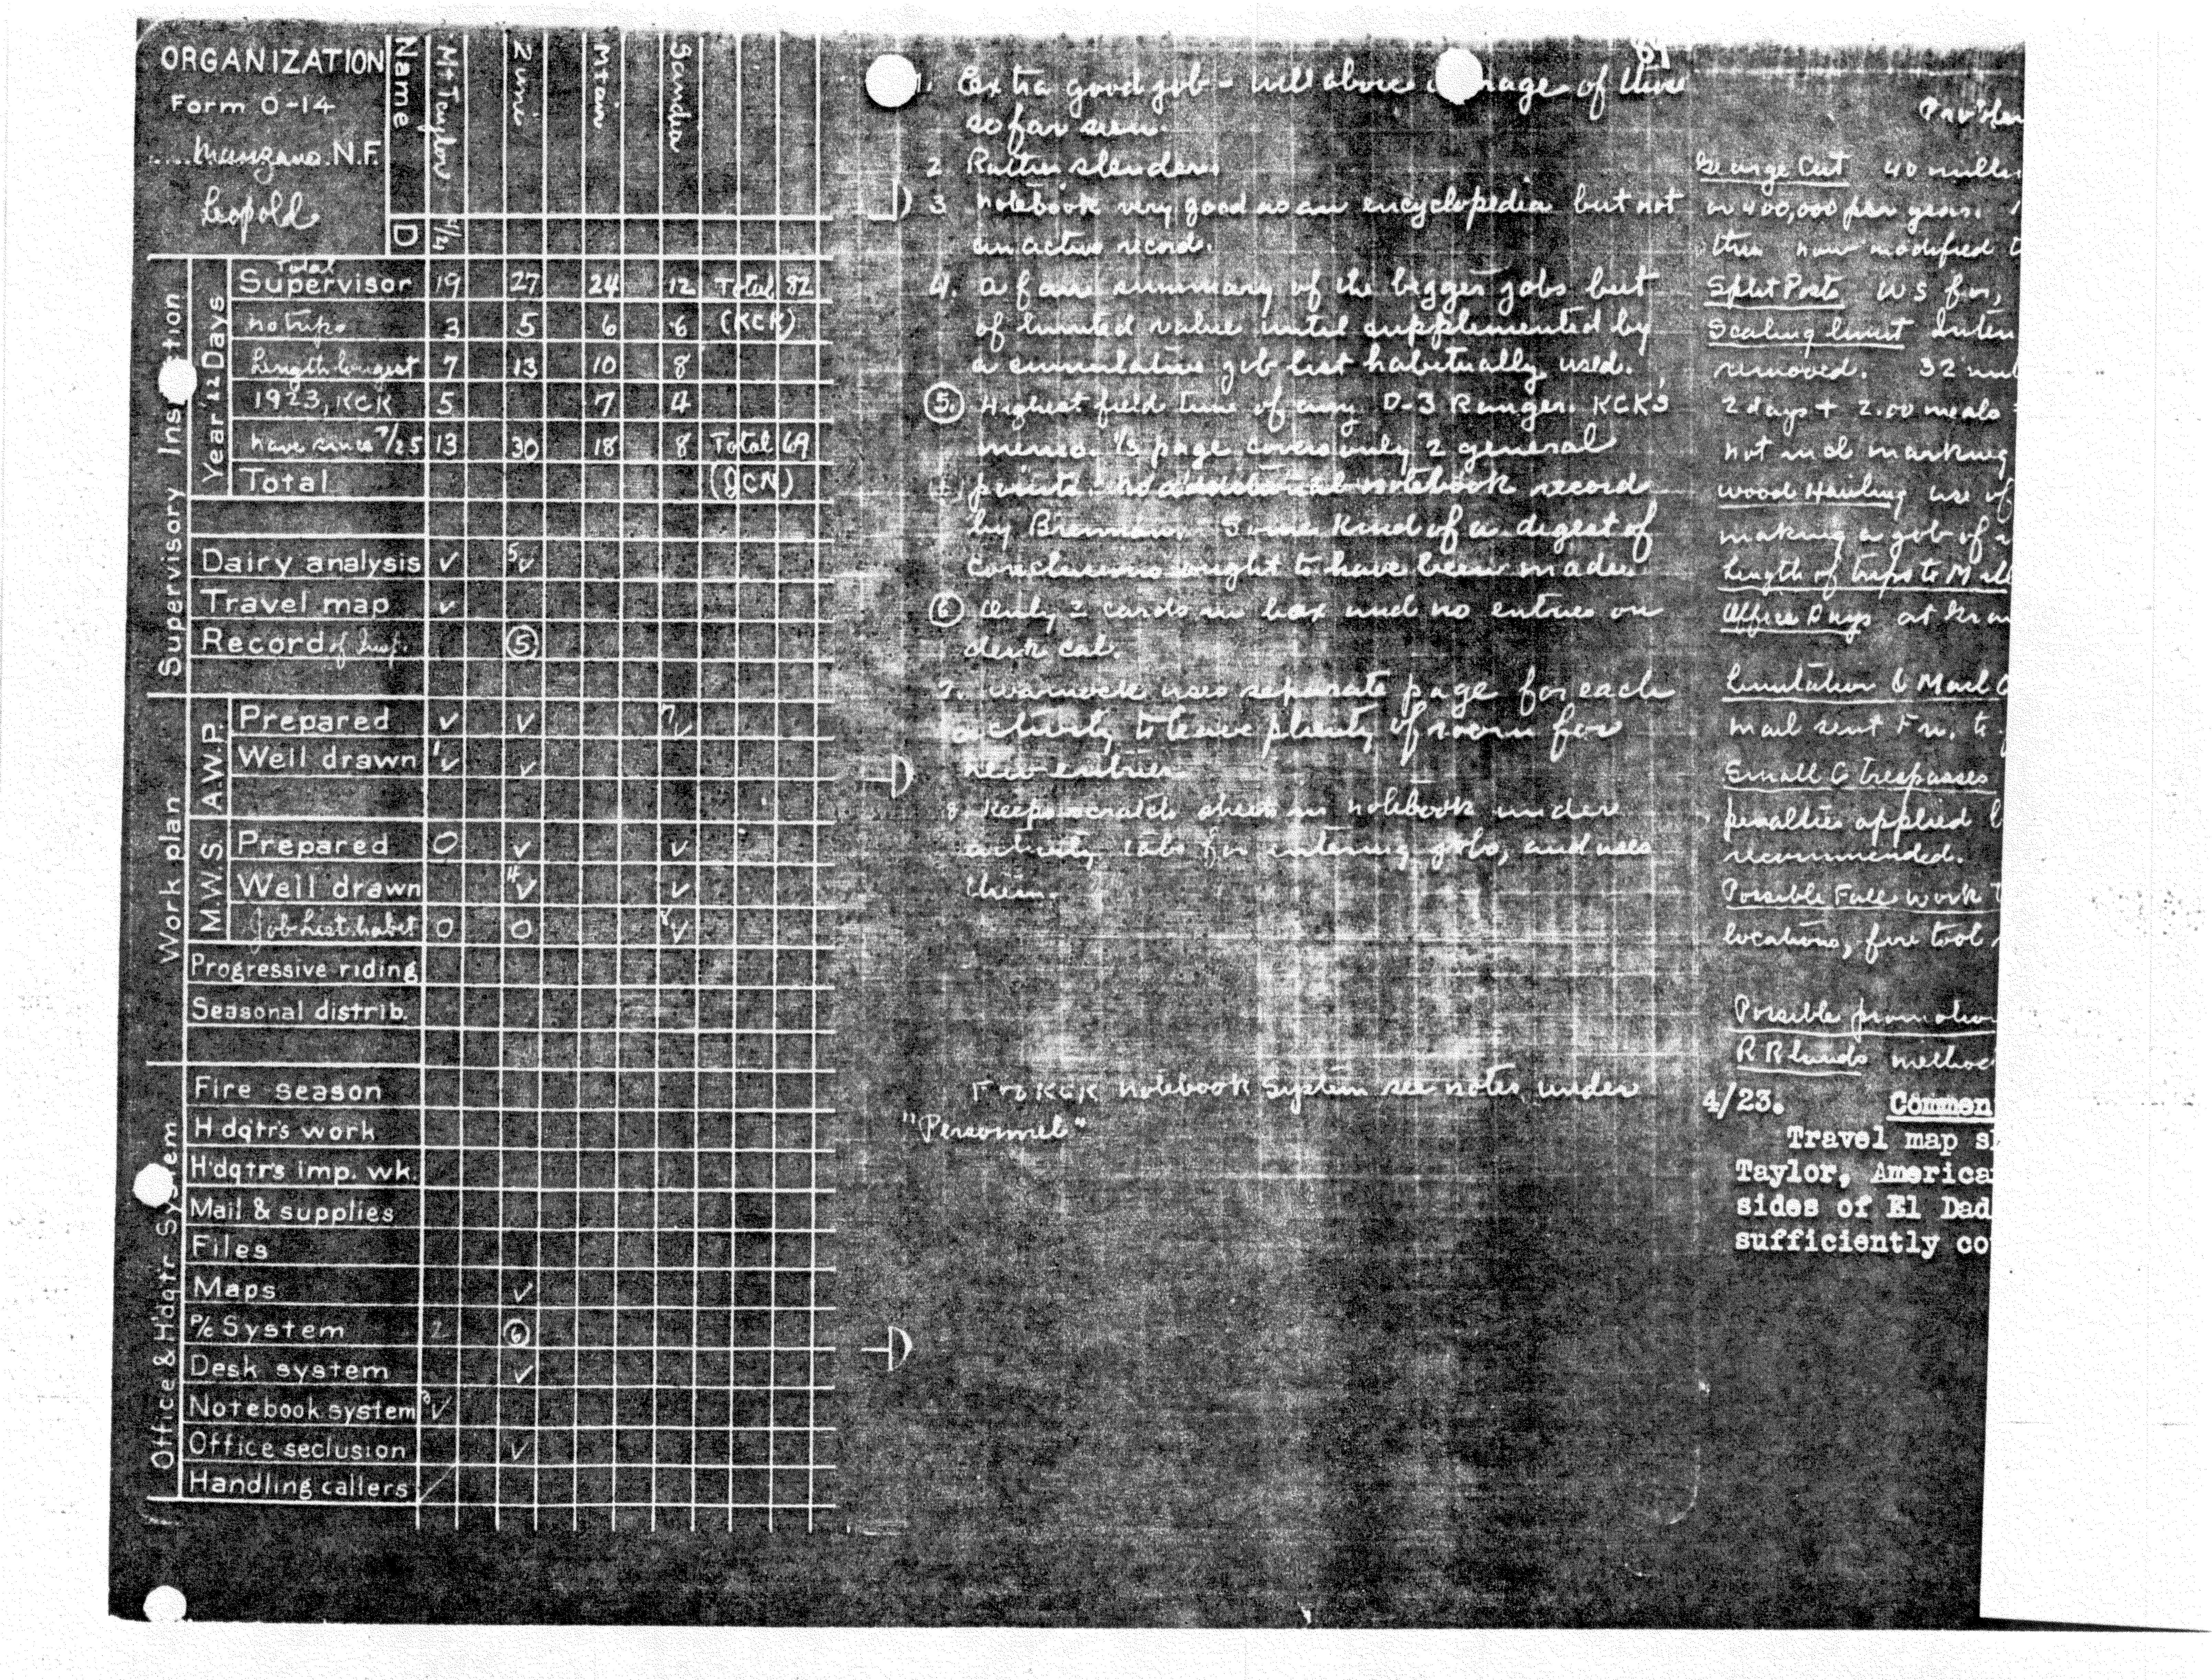 ORGANIZATION
Form O-14
Manzano N.F.
Leopold
Name Mt Taylor Zuni Mtair Sandia
D
Supervisory Inspection
Year 22 Days
Total
Supervisor 19 27 24 12 Total 82
no trips 3 5 6 6 (KCK)
Length longest 7 13 10 8
1923, KCK 5 7 4
have since 7/25 13 30 18 8 Total 69
Total (JCN)
Dairy analysis ✓ 5✓
Travel map ✓
Record of Insp. (5)
Work plan
A.W.P.
Prepared ✓ ✓ 7✓
Well drawn 1✓ ✓
M.W.S.
Prepared 0 ✓ ✓
Well drawn 4✓ ✓
Job List habit 0 0 8✓
Progressive riding
Seasonal distrib.
Office & Hdqtr System
Fire season
Hdqtr's work
H'dqtr's imp. wk.
Mail & supplies
Files
Maps ✓
P/c System 2 (6)
Desk system ✓
Notebook system 3✓
Office seclusion ✓
Handling callers
67
1. Extra good job - well above average of those
so far seen.
2 Rather slender.
3 Notebook very good as an encyclopedia but not
an active record.
4. A fair summary of the bigger jobs but
of limited value until supplemented by
a cumulative job list habitually used.
(5.) Highest field time of any D-3 Ranger. KCK's
memo. 1/3 page covers only 2 general
points. no additional notebook record
by Brennan. Some kind of a digest of
conclusions ought to have been made.
(6) Only 2 cards in box and no entries on
desk cal.
7. Warnock uses separate page for each
activity to leave plenty of room for
new entries.
8. Keeps scratch sheets in notebook under
activity tabs for entering jobs, and uses
them.
For KCK notebook system see notes under
"Personnel"
Cut 40 mill
or 400,000 per year.
this now modified t
Split Posts W S for,
Scaling limit
removed. 32
2 days + 2.00 meals
not incl marking
Wood Hauling use of
making a job of
Length of trips to M
Office Days at
Limitation 6 Mail
mail sent Fr. to
Small G Trespasses
penalties applied
recommended.
Possible Fall work
locations, fire tool
Possible promotion
R R lands method
4/23. Commen
Travel map s
Taylor, America
sides of El Dad
sufficiently co